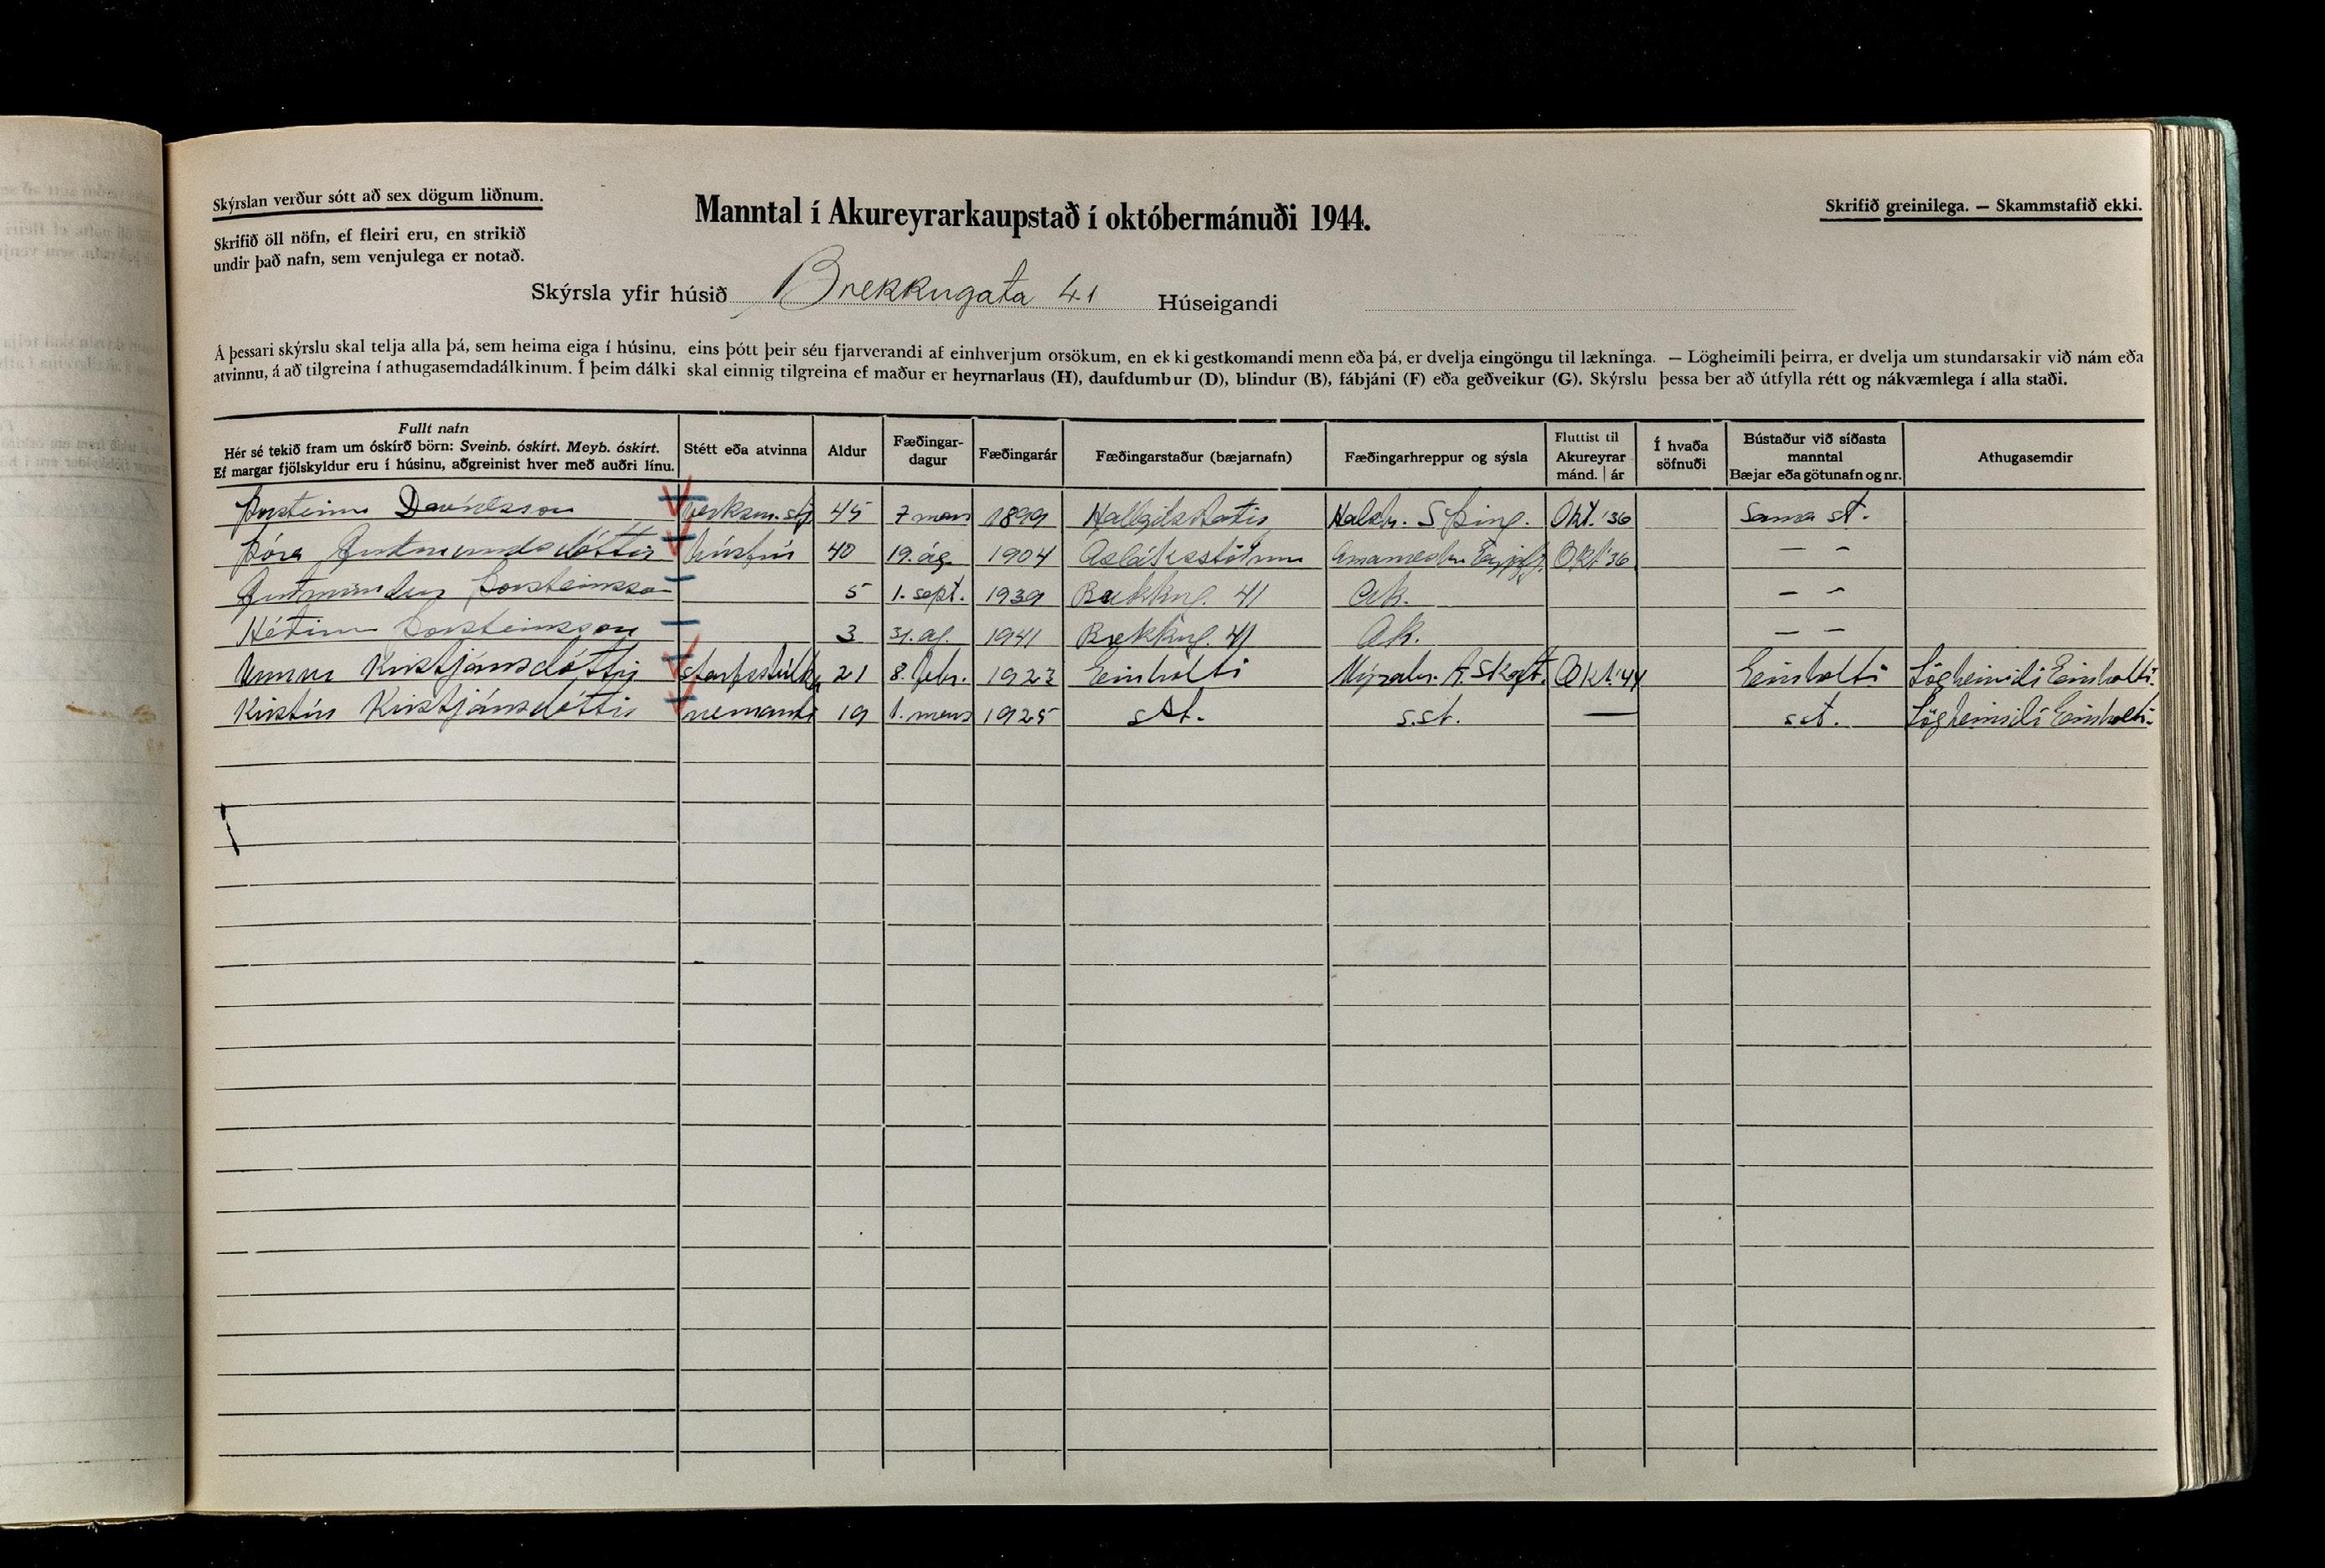 Skýrslan verður sótt að sex dögum liðnum.
Skrifið öll nöfn, ef fleiri eru, en strikið
undir það nafn, sem venjulega er notað.
Manntal í Akureyrarkaupstað í októbermánuði 1944.
Skrifið greinilega. — Skammstafið ekki.
Skýrsla yfir húsið Brekkugata 41 Húseigandi
Á þessari skýrslu skal telja alla þá, sem heima eiga í húsinu, eins þótt þeir séu fjarverandi af einhverjum orsökum, en ekki gestkomandi menn eða þá, er dvelja eingöngu til lækninga. — Lögheimili þeirra, er dvelja um stundarsakir við nám eða
atvinnu, á að tilgreina í athugasemdadálkinum. Í þeim dálki skal einnig tilgreina ef maður er heyrnarlaus (H), daufdumbur (D), blindur (B), fábjáni (F) eða geðveikur (G). Skýrslu þessa ber að útfylla rétt og nákvæmlega í alla staði.
Fullt nafn
Hér sé tekið fram um óskírð börn: Sveinb. óskírt. Meyb. óskírt.
Ef margar fjölskyldur eru í húsinu, aðgreinist hver með auðri línu.
Stétt eða atvinna
Aldur
Fæðingar-
dagur
Fæðingarár
Fæðingarstaður (bæjarnafn)
Fæðingarhreppur og sýsla
Fluttist til
Akureyrar
mánd. | ár
Í hvaða
söfnuði
Bústaður við síðasta
manntal
Bæjar eða götunafn og nr.
Athugasemdir
Þorsteinn Davíðsson verksm.stj 45 7 mars 1899 Hallgilsstaðir Hálshr. S Þing. Okt. '36 Sama st.
Þóra Guðmundsdóttir húsfrú 40 19. ág. 1904 Ásláksstöðum Okt '36 — —
Guðmundur Þorsteinsson 5 1. sept. 1939 Brekkug. 41 Ak. — —
Héðinn Þorsteinsson 3 31. ág. 1941 Brekkug. 41 Ak. — —
Unnur Kristjánsdóttir starfsstúlka 21 8. febr. 1923 Einholti Mýrahr. A. Skaft. Okt. '44 Einholti Lögheimili Einholti.
Kristín Kristjánsdóttir nemandi 19 1. mars 1925 s.st. s.st. — s.st. Lögheimili Einholti.